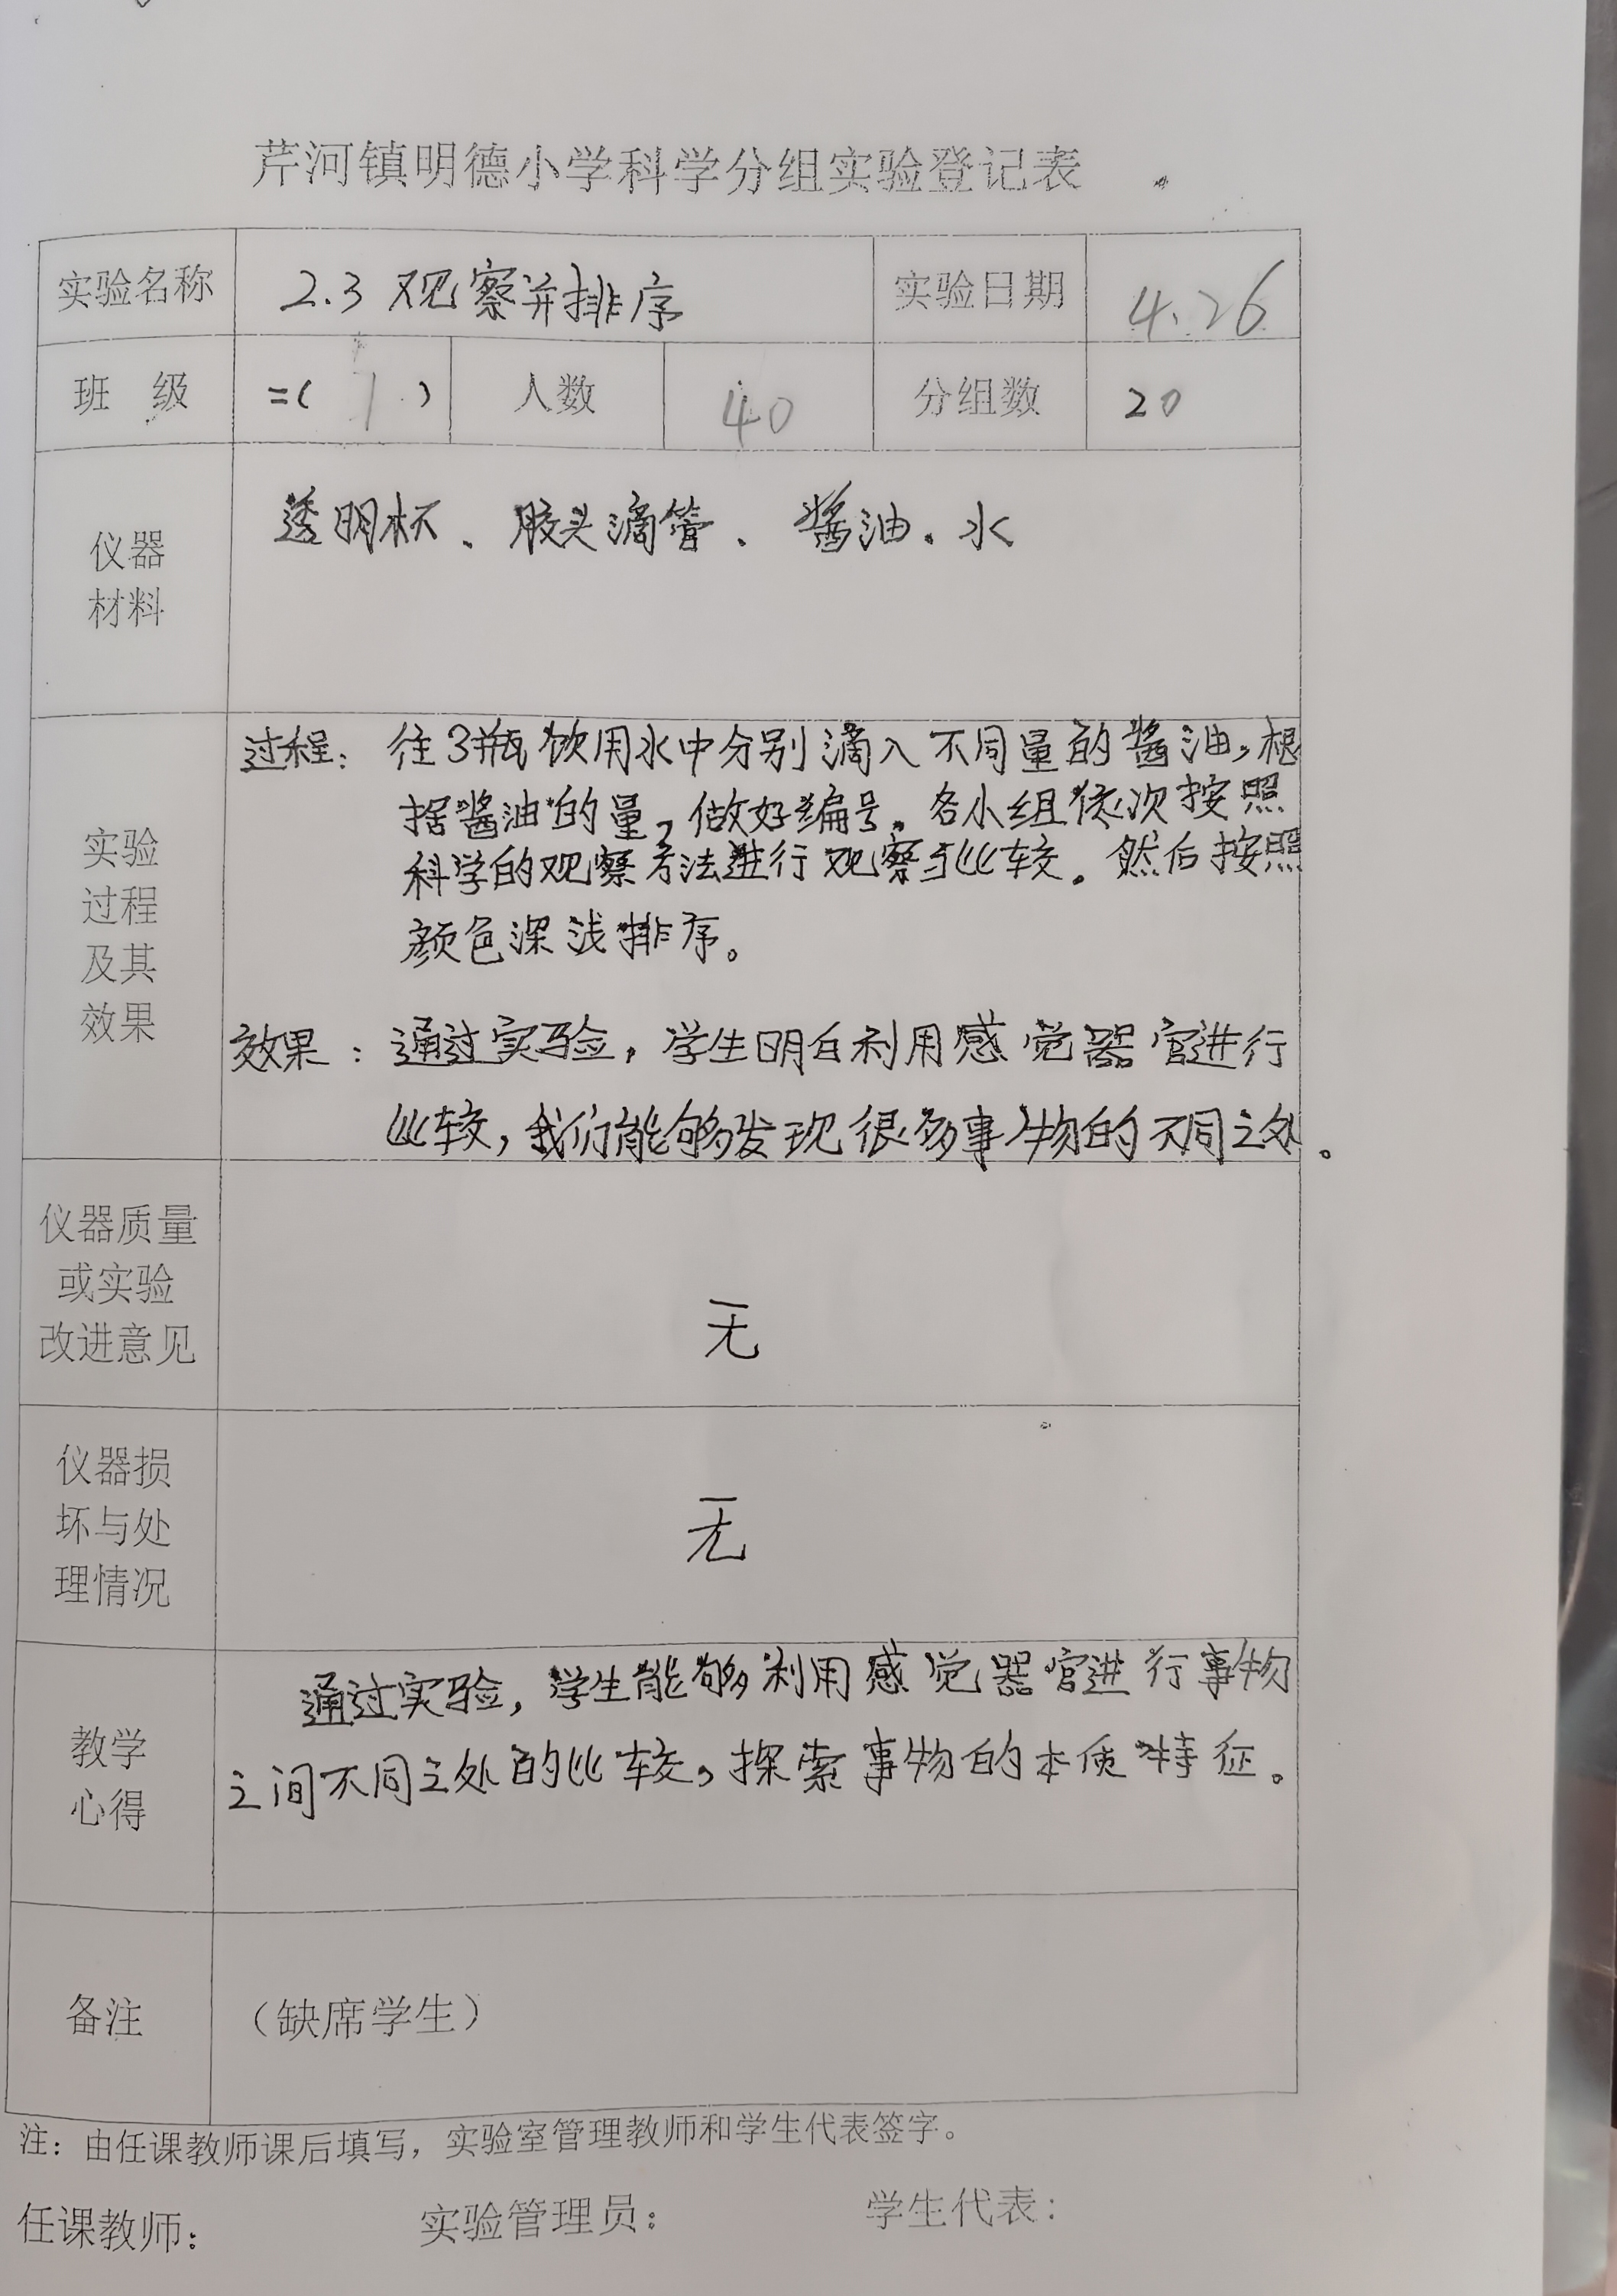 芹河镇明德小学科学分组实验登记表
实验名称 2.3 观察并排序 实验日期 4.26
班 级 二( 1 ) 人数 40 分组数 20
仪器
材料
透明杯、胶头滴管、酱油、水
实验
过程
及其
效果
过程：往3瓶饮用水中分别滴入不同量的酱油，根
据酱油的量，做好编号。各小组依次按照
科学的观察方法进行观察与比较。然后按照
颜色深浅排序。
效果：通过实验，学生明白利用感觉器官进行
比较，我们能够发现很多事物的不同之处。
仪器质量
或实验
改进意见
无
仪器损
坏与处
理情况
无
教学
心得
通过实验，学生能够利用感觉器官进行事物
之间不同之处的比较，探索事物的本质特征。
备注 （缺席学生）
注：由任课教师课后填写，实验室管理教师和学生代表签字。
任课教师： 实验管理员： 学生代表：